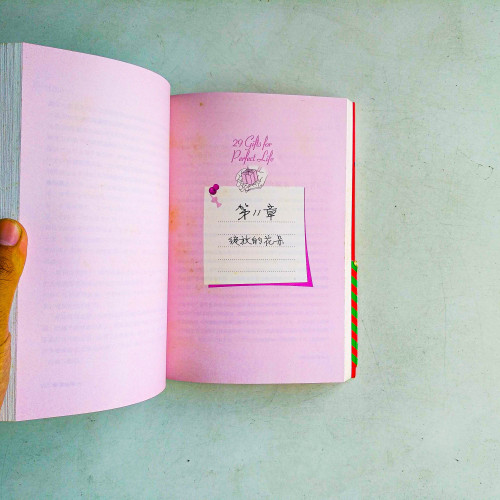 29 Gifts for
Perfect Life
第11章
绽放的花朵